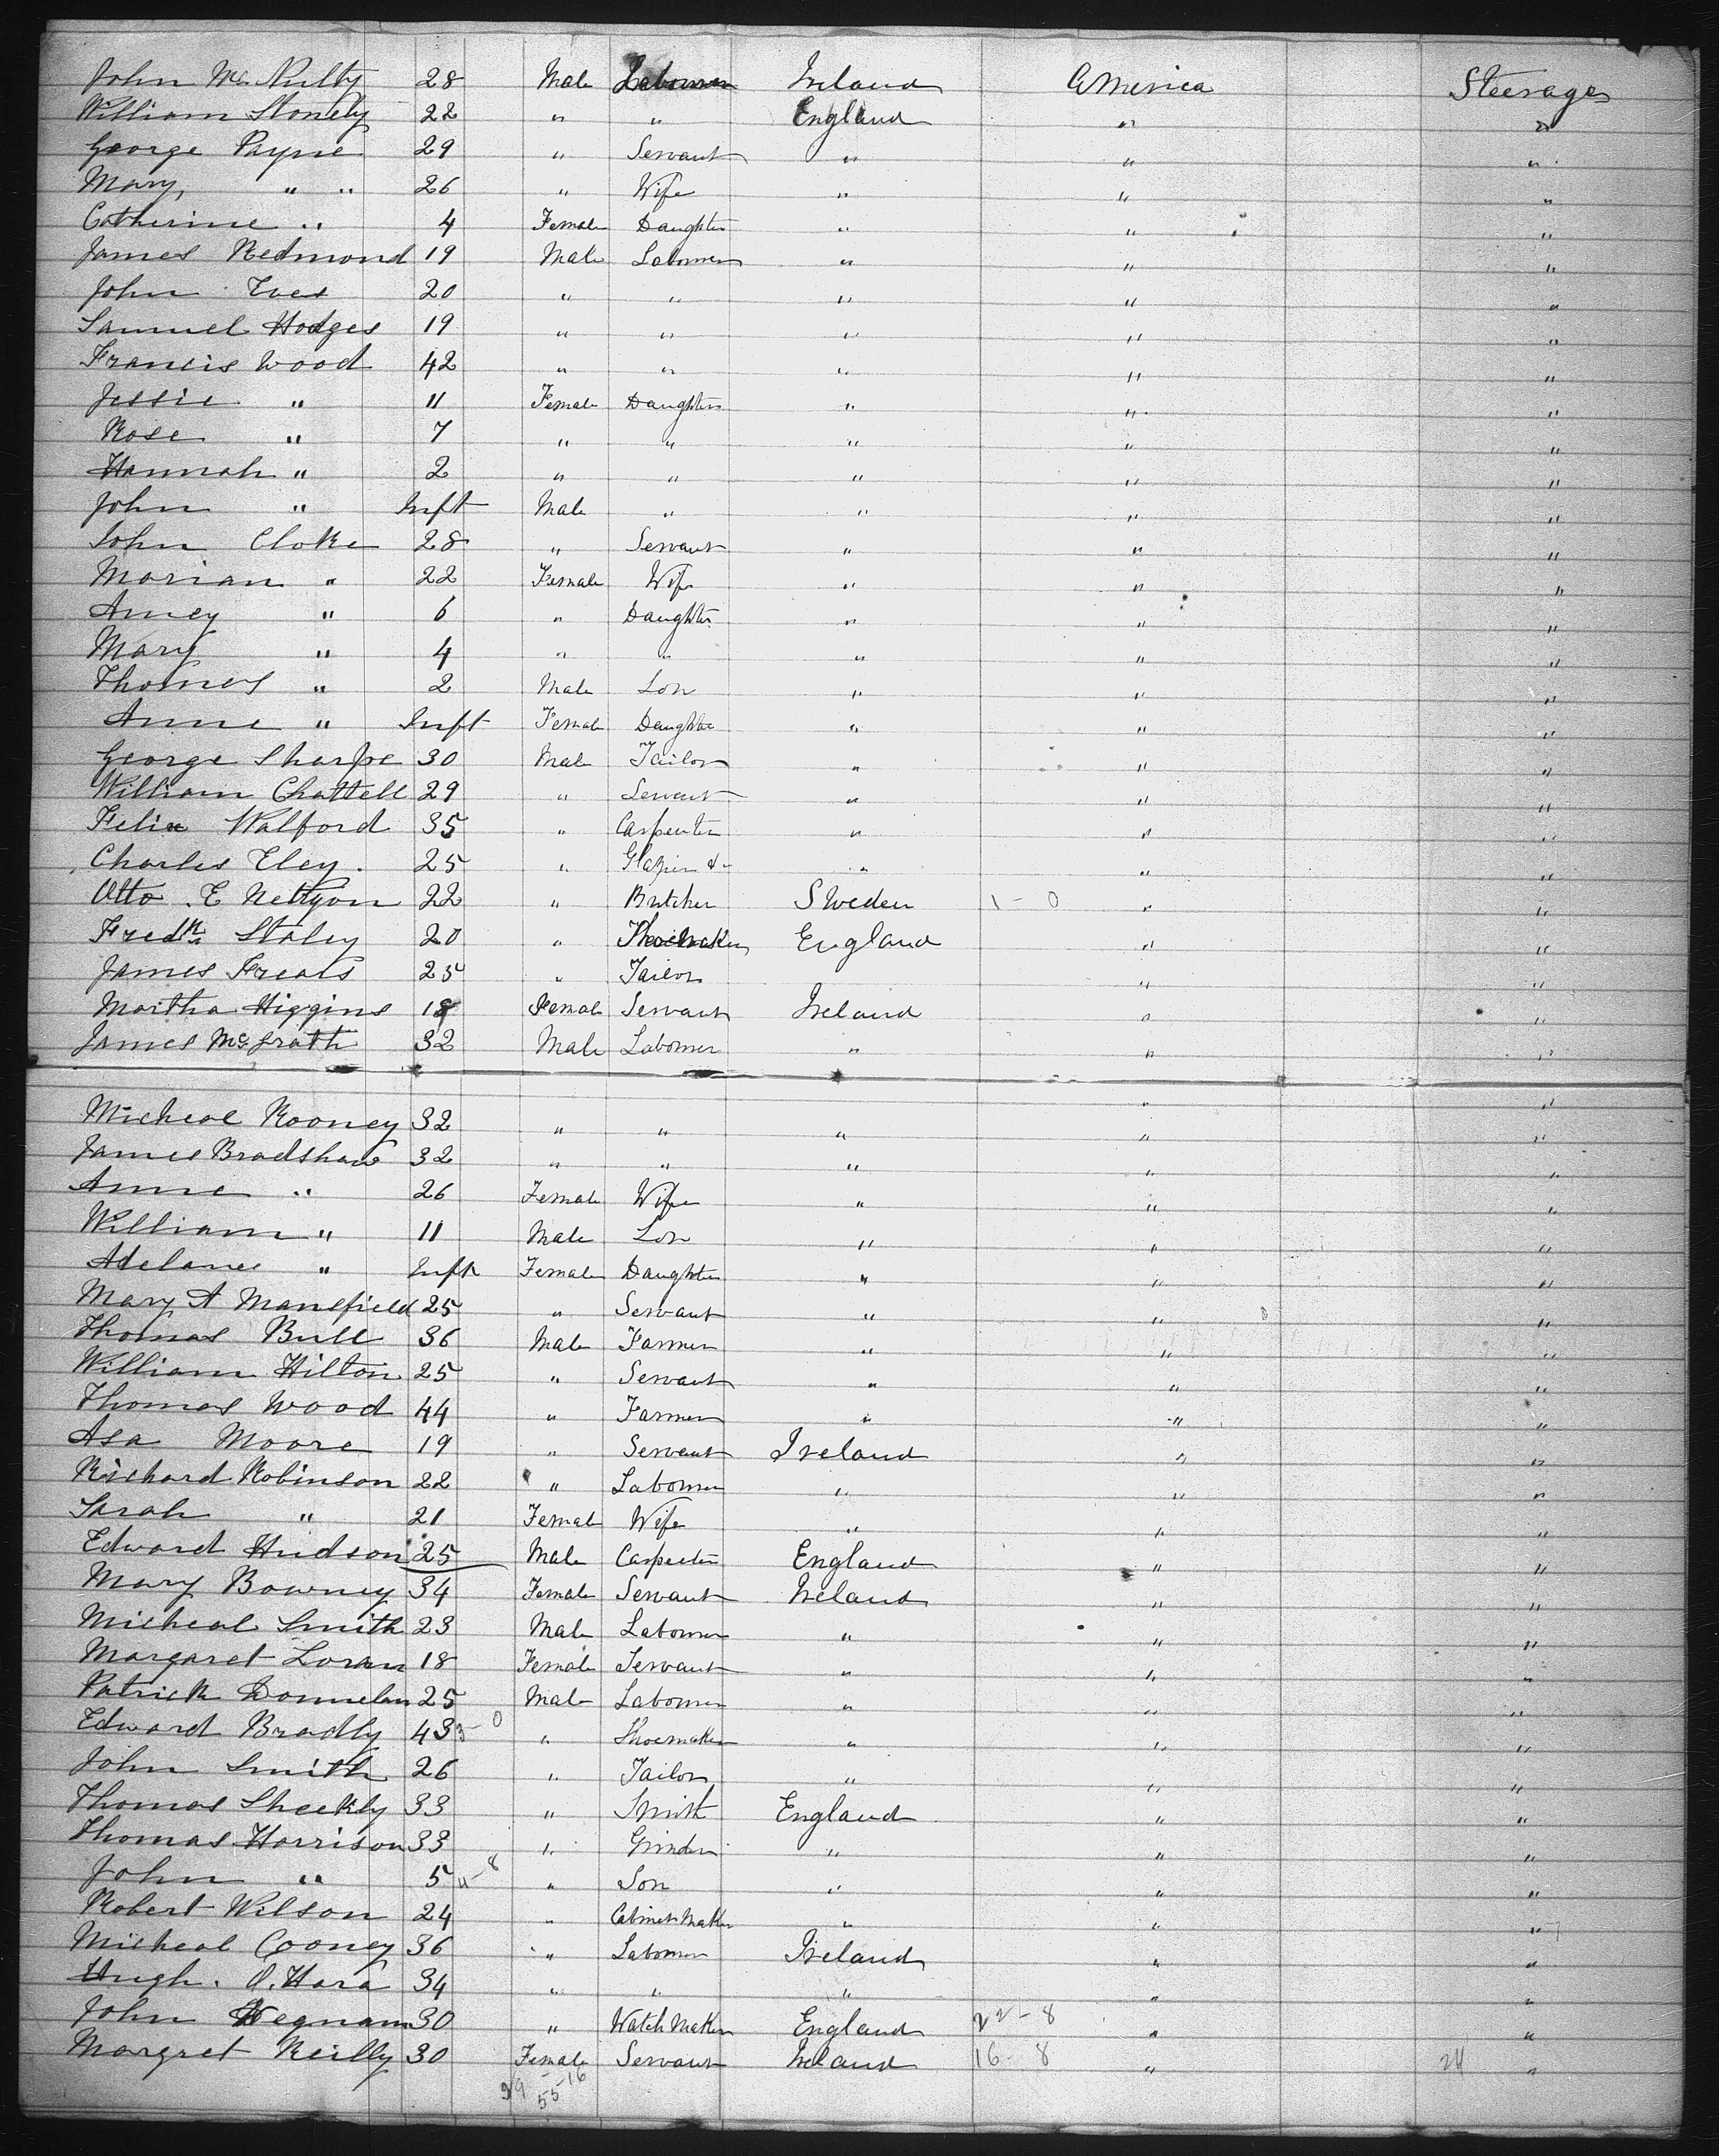 John Mc Nulty 28 Male Labourer Ireland America Steerage
William Stonely 22 " " England " "
George Payne 29 " Servant " " "
Mary, " " 26 " Wife " " "
Catherine " 4 Female Daughter " " "
James Redmond 19 Male Labourer " " "
John Ives 20 " " " " "
Samuel Hodges 19 " " " " "
Francis Wood 42 " " " " "
Jessie " 11 Female Daughter " " "
Rose " 7 " " " " "
Hannah " 2 " " " " "
John " Inft Male " " " "
John Cloke 28 " Servant " " "
Marian " 22 Female Wife " " "
Anney " 6 " Daughter " " "
Mary " 4 " " " " "
Thomas " 2 Male Son " " "
Anne " Inft Female Daughter " " "
George Sharpe 30 Male Tailor " " "
William Chattell 29 " Servant " " "
Felix Walford 35 " Carpenter " " "
Charles Eley. 25 " Glazier &c " " "
Otto . E 22 " Butcher Sweden 1 - 0 " "
Fredk Staley 20 " Shoemaker England " "
James Frears 25 " Tailor " "
Martha Higgins 18 Female Servant Ireland " "
James McGrath 32 Male Labourer " " "
" "
Micheal Rooney 32 " " " " "
James Bradshaw 32 " " " " "
Anne " 26 Female Wife " " "
William " 11 Male Son " " "
" Inft Female Daughter " " "
Mary A Mansfield 25 " Servant " " "
Thomas Bull 36 Male Farmer " " "
William Hilton 25 " Servant " " "
Thomas Wood 44 " Farmer " " "
Asa Moore 19 " Servant Ireland " "
Richard Robinson 22 " Labourer " " "
Sarah " 21 Female Wife " " "
Edward Hudson 25 Male Carpenter England " "
Mary Bowney 34 Female Servant Ireland " "
Micheal Smith 23 Male Labourer " " "
Margaret Loran 18 Female Servant " " "
Patrick Donnelan 25 Male Labourer " " "
Edward Bradly 43 3-0 " Shoemaker " " "
John Smith 26 " Tailor " " "
Thomas Sheekly 33 " Smith England " "
Thomas Harrison 33 " Grinder " " "
John " 5 11-8 " Son " " "
Robert Wilson 24 " Cabinet Maker " " "
Micheal Cooney 36 " Labourer Ireland " "
Hugh. O.Hara 34 " " " " "
John Hegnam 30 " Watch Maker England 22-8 " "
Margret Reilly 30 Female Servant Ireland 16-8 " 24 "
39-16
55